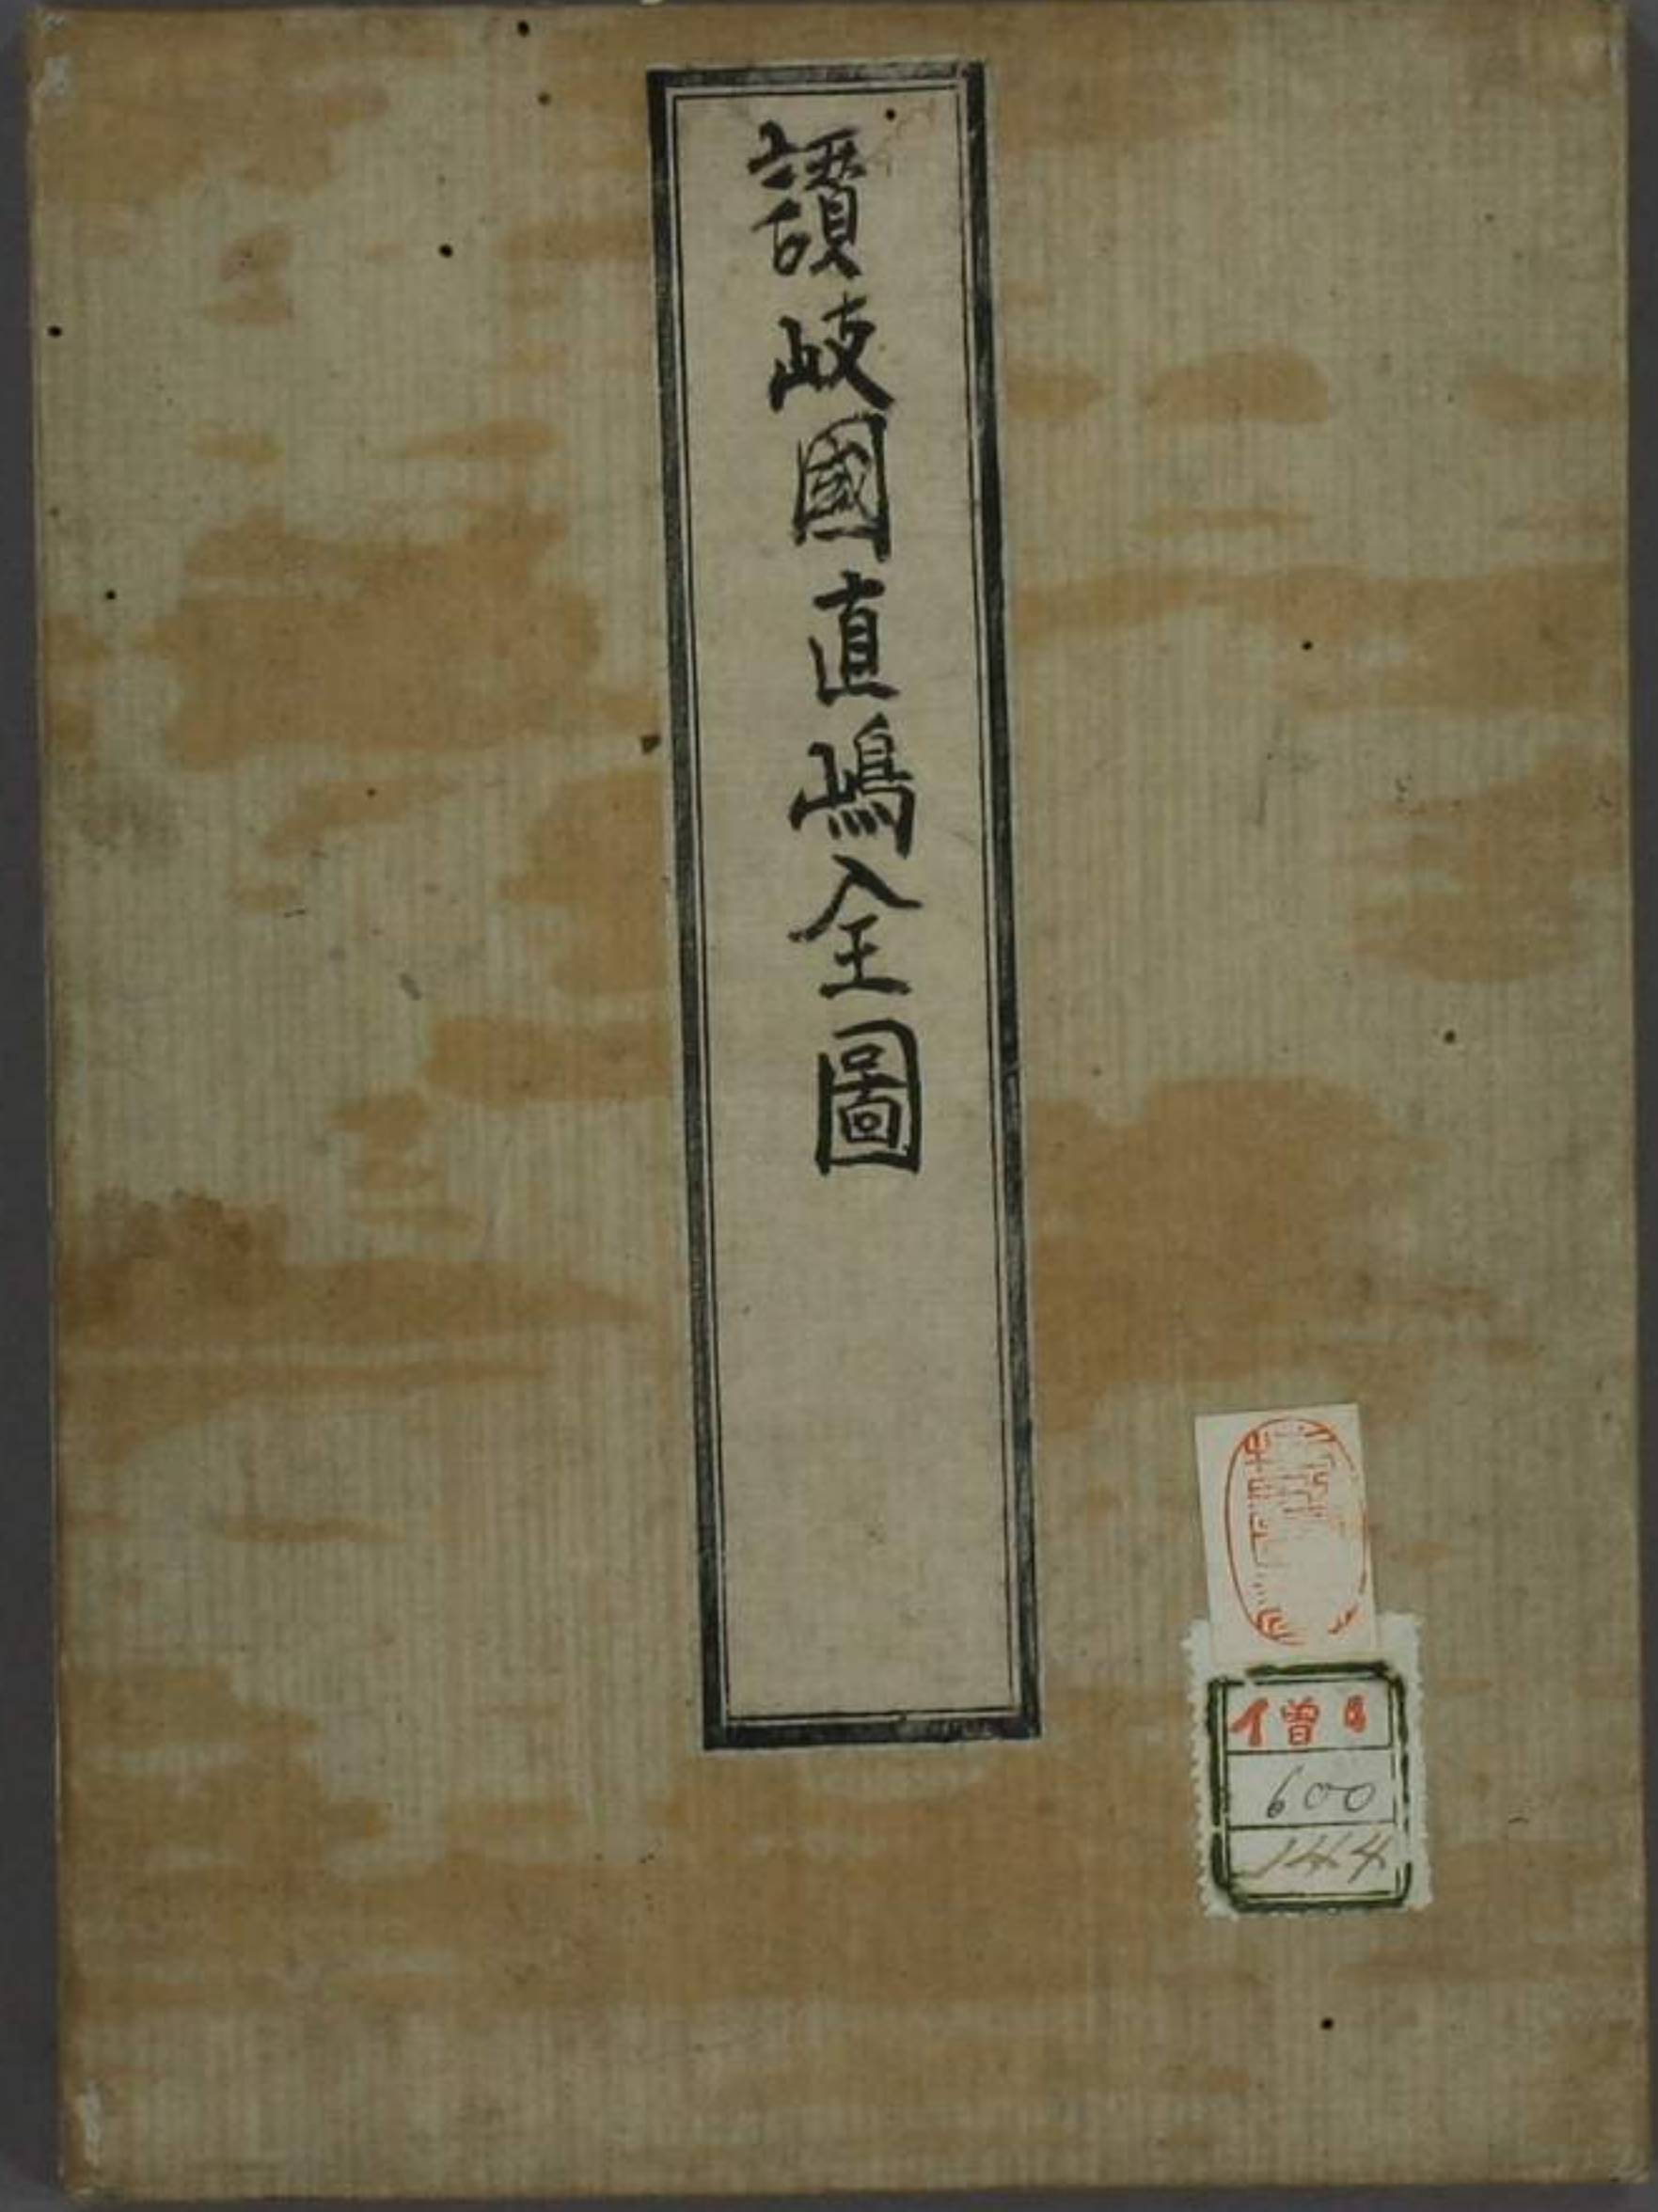 讃岐國直嶋全圖
僧
600
144